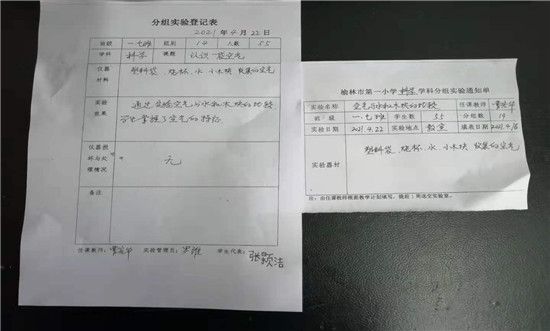 分组实验登记表
2021年4月22日
班级 一.七班 组别 14 人数 55
学科 科学 课题 认识一袋空气
仪器材料 塑料袋、烧杯、水 小木块 收集的空气
实验效果 通过实验空气与水和木块的比较
学生掌握了空气的特征
仪器损坏与处理情况 无
备注
任课教师: 实验管理员: 学生代表: 张颢洁
榆林市第一小学 科学 学科分组实验通知单
实验名称 空气与水和木块的比较 任课教师
班 级 一.七班 学生数 55 分组数 14
实验日期 2021.4.22 实验地点 教室 填表日期 2021.4.16
实验器材 塑料袋、烧杯、水、小木块 收集的空气
注:由任课教师根据教学计划填写,提前1周送交实验室。